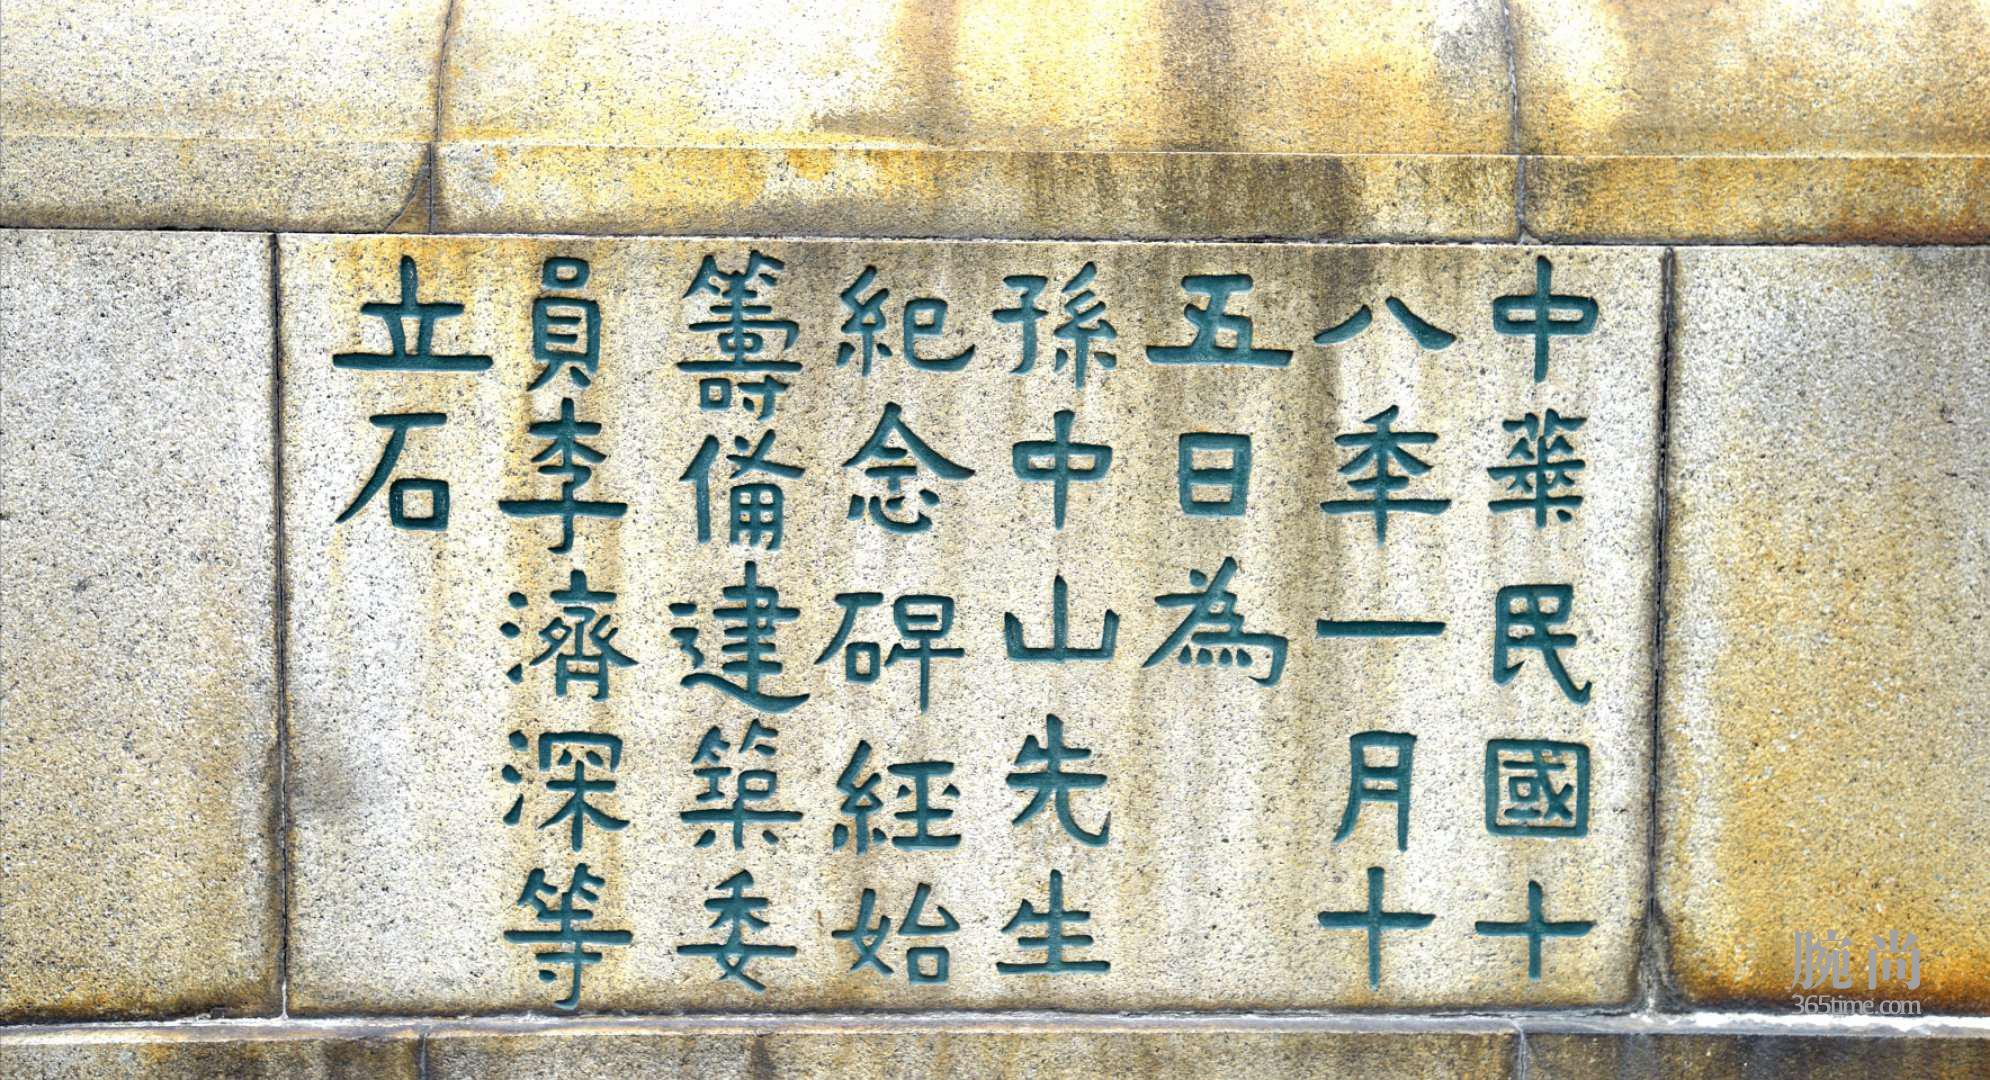 中華民國十
八年一月十
五日為
孫中山先生
紀念碑經始
籌備建築委
員李濟深等
立石
腕尚
365time.com